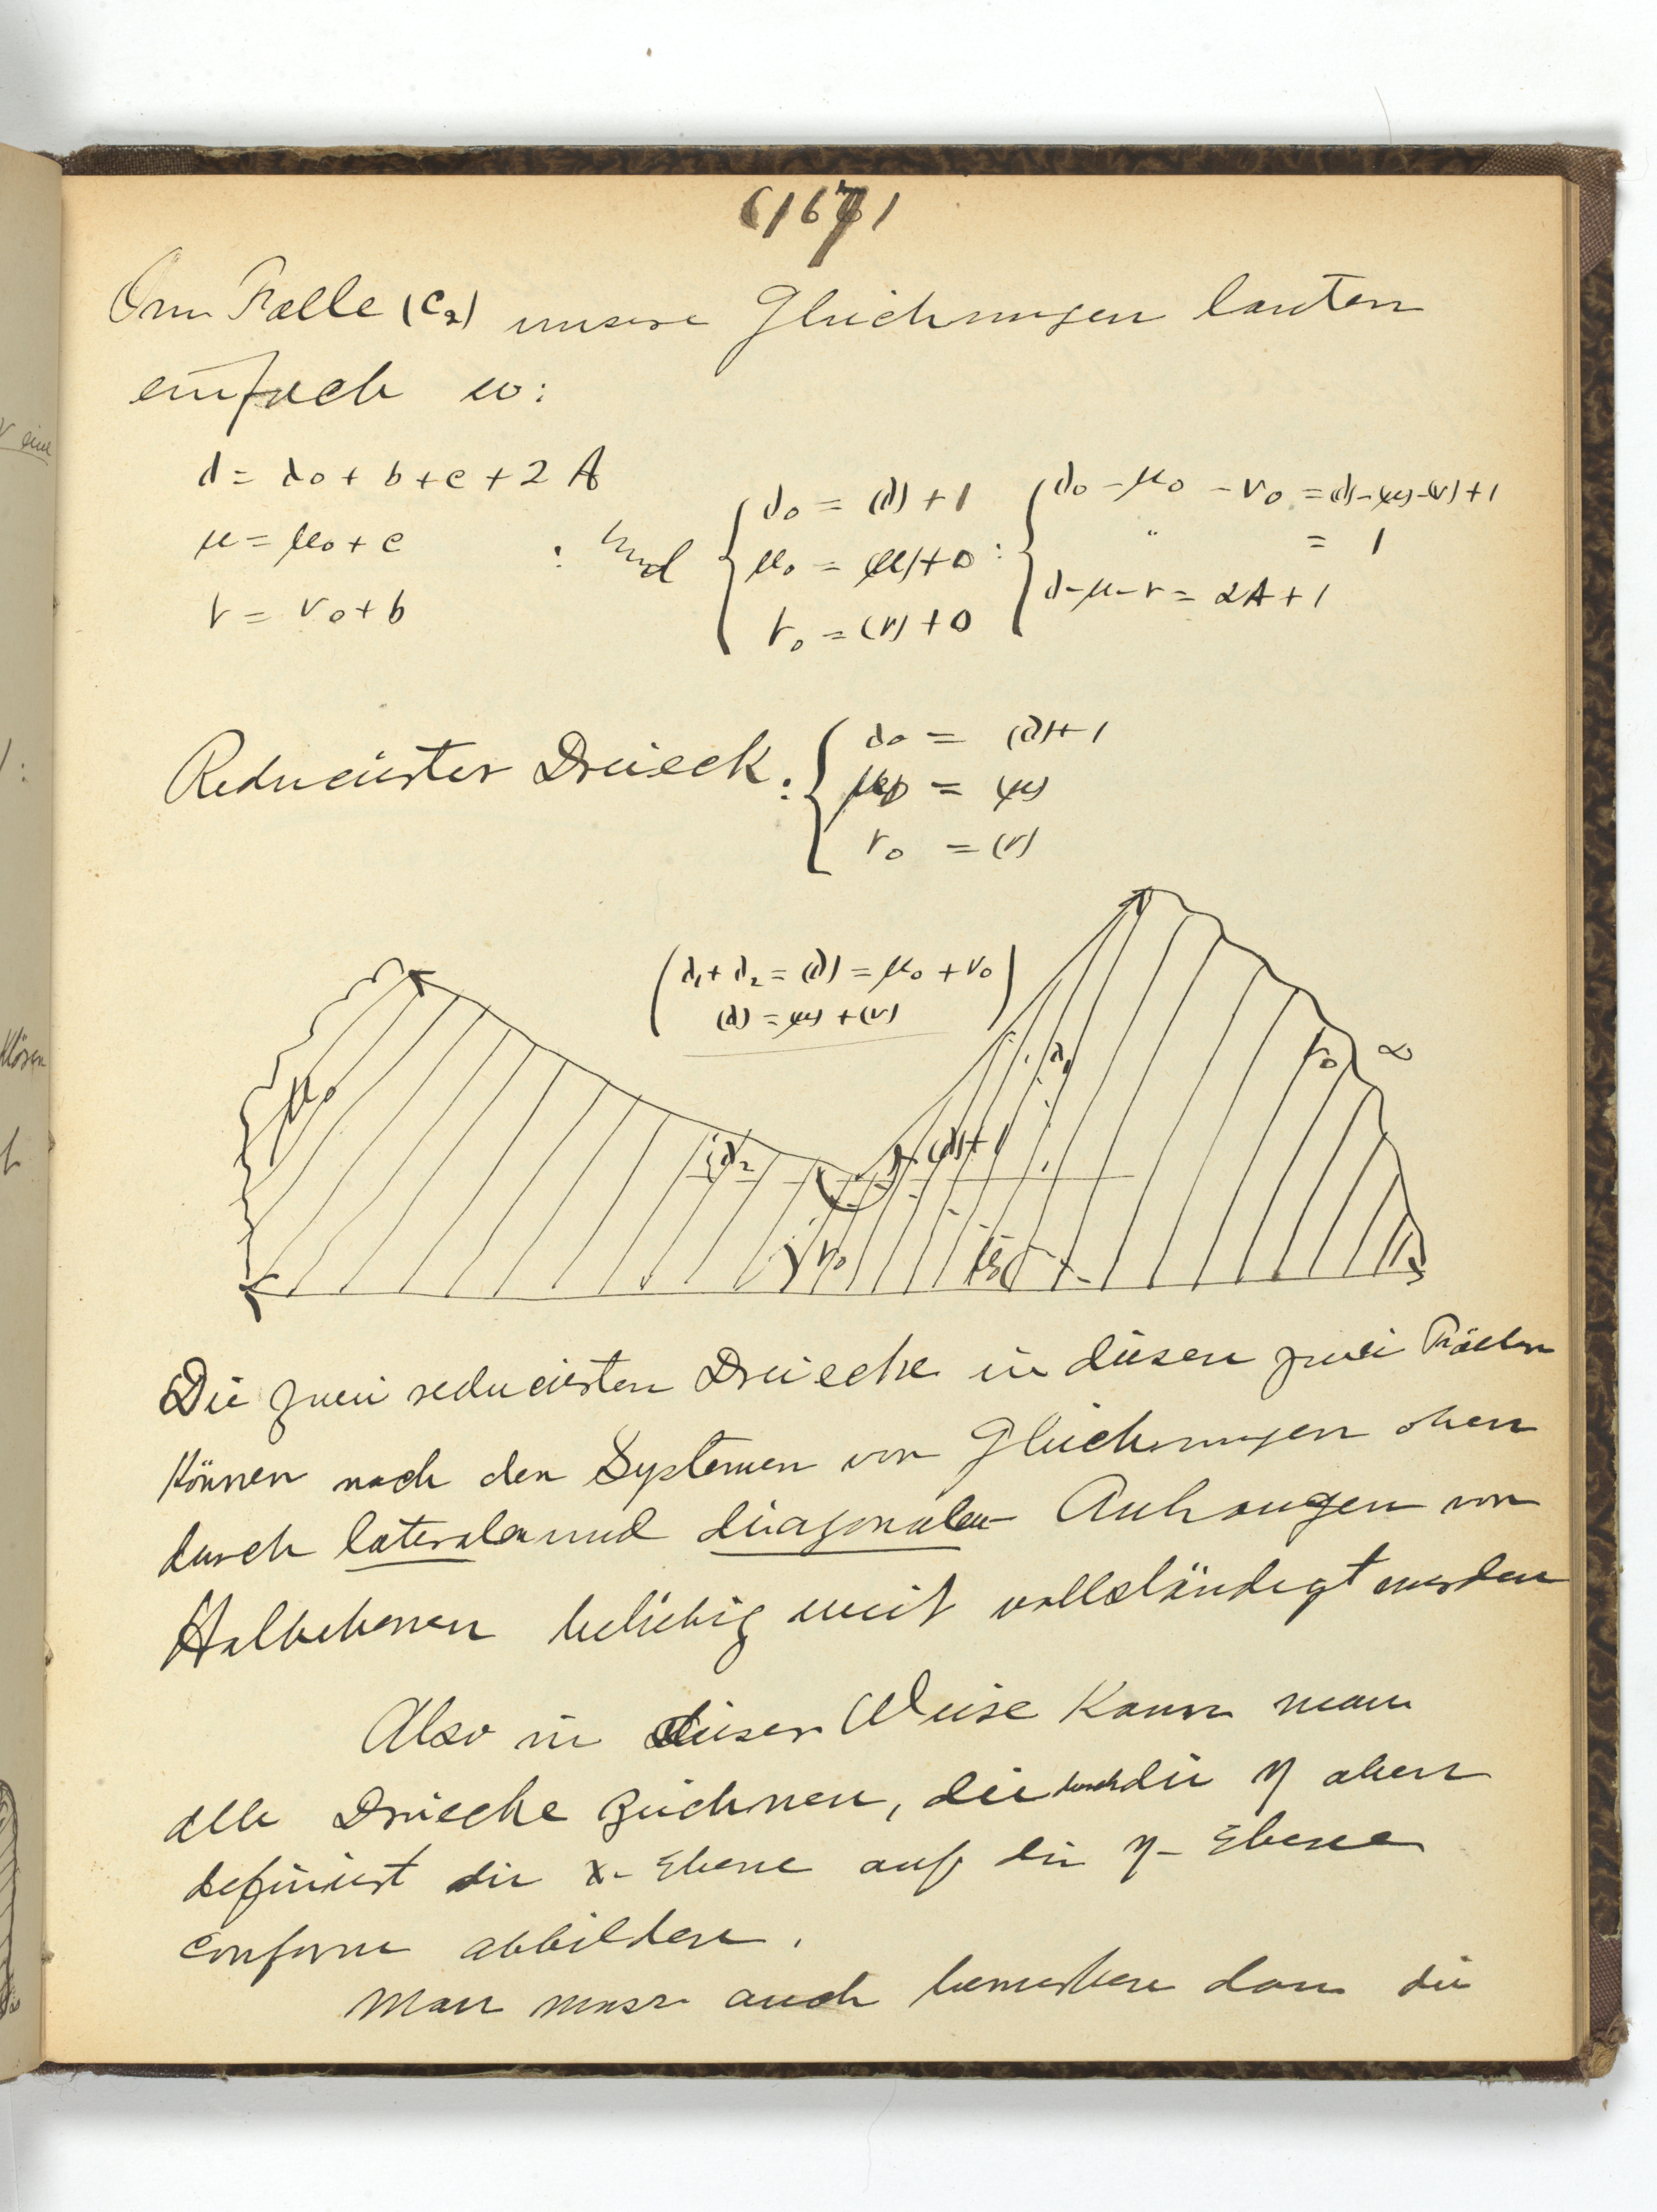 (167)
Im Falle (c₂) unsere Gleichungen lauten
einfach so:
λ = λ₀ + b + c + 2A
μ = μ₀ + c
ν = ν₀ + b
: und { λ₀ = (λ) + 1
μ₀ = (μ) + 0
ν₀ = (ν) + 0
: { λ₀ - μ₀ - ν₀ = (λ)-(μ)-(ν)+1
" = 1
λ-μ-ν = 2A+1
Reducirter Dreieck : { λ₀ = (λ)+1
μ₀ = (μ)
ν₀ = (ν)
(λ₁ + λ₂ = (λ) = μ₀ + ν₀)
(λ) = (μ) + (ν)
μ₀
λ₁
ν₀ ∞
λ₂
(λ)+1
ν₀
Die zwei reducirten Dreiecke in diesen zwei Fällen
können nach den Systemen von Gleichungen oben
durch lateralen und diagonalen Anhangen von
Halbebenen beliebig weit vollständigt werden
Also in dieser Weise kann man
alle Dreiecke zeichnen, die durch die η oben
definirt die x-Ebene auf die η-Ebene
conform abbilden.
Man muss auch bemerken dass die
V eine
lösen